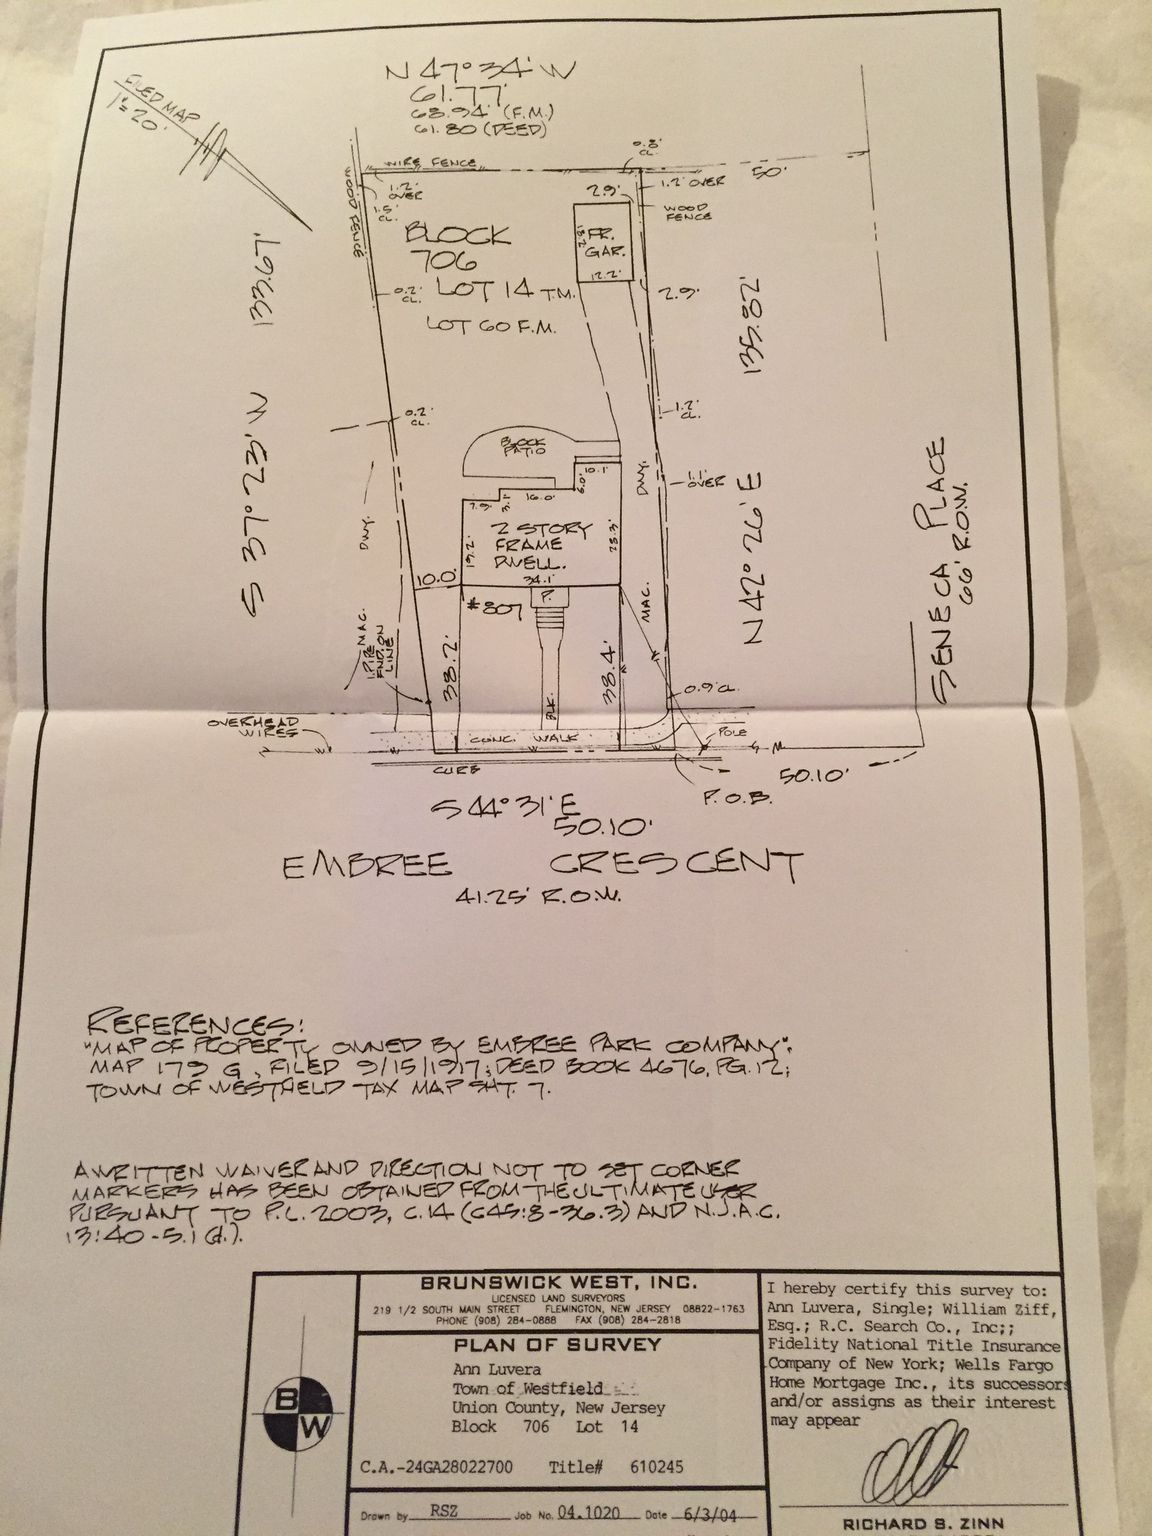 FILED MAP
1"=20'
N 47°34' W
61.77'
68.94' (F.M.)
61.80 (DEED)
0.8'
CL.
WIRE FENCE
50'
WOOD FENCE
1.2'
OVER
1.5'
CL.
2.9'
1.2' OVER
WOOD
FENCE
BLOCK
706
18.2'
FR.
GAR.
12.2'
0.2'
CL.
LOT 14 T.M.
2.9'
LOT 60 F.M.
133.67'
135.82'
0.2'
CL.
1.2'
CL.
BLOCK
PATIO
10.1'
6.0'
DWY.
1.1'
OVER
S 37° 23' W
N 42° 26' E
SENECA PLACE
66' R.O.W.
7.9'
3.1'
16.0'
2 STORY
FRAME
DWELL.
19.2'
28.3'
34.1'
DWY.
10.0'
#807
P.
MAC.
MAC.
PIPE
FND. ON
LINE
38.2'
38.4'
BLK.
0.9' CL.
OVERHEAD
WIRES
CONC. WALK
POLE
CURB
P.O.B.
50.10'
S 44° 31' E
50.10'
EMBREE CRESCENT
41.25' R.O.W.
REFERENCES:
"MAP OF PROPERTY OWNED BY EMBREE PARK COMPANY".
MAP 179 G, FILED 9/15/1917; DEED BOOK 4676, PG. 12;
TOWN OF WESTFIELD TAX MAP SHT. 7.
A WRITTEN WAIVER AND DIRECTION NOT TO SET CORNER
MARKERS HAS BEEN OBTAINED FROM THE ULTIMATE USER
PURSUANT TO P.L. 2003, C.14 (C45:8-36.3) AND N.J.A.C.
13:40-5.1 (d.).
BRUNSWICK WEST, INC.
LICENSED LAND SURVEYORS
219 1/2 SOUTH MAIN STREET FLEMINGTON, NEW JERSEY 08822-1763
PHONE (908) 284-0888 FAX (908) 284-2818
PLAN OF SURVEY
Ann Luvera
Town of Westfield
Union County, New Jersey
Block 706 Lot 14
C.A.-24GA28022700 Title# 610245
Drawn by RSZ Job No. 04.1020 Date 6/3/04
BW
I hereby certify this survey to:
Ann Luvera, Single; William Ziff,
Esq.; R.C. Search Co., Inc;;
Fidelity National Title Insurance
Company of New York; Wells Fargo
Home Mortgage Inc., its successors
and/or assigns as their interest
may appear
RICHARD S. ZINN